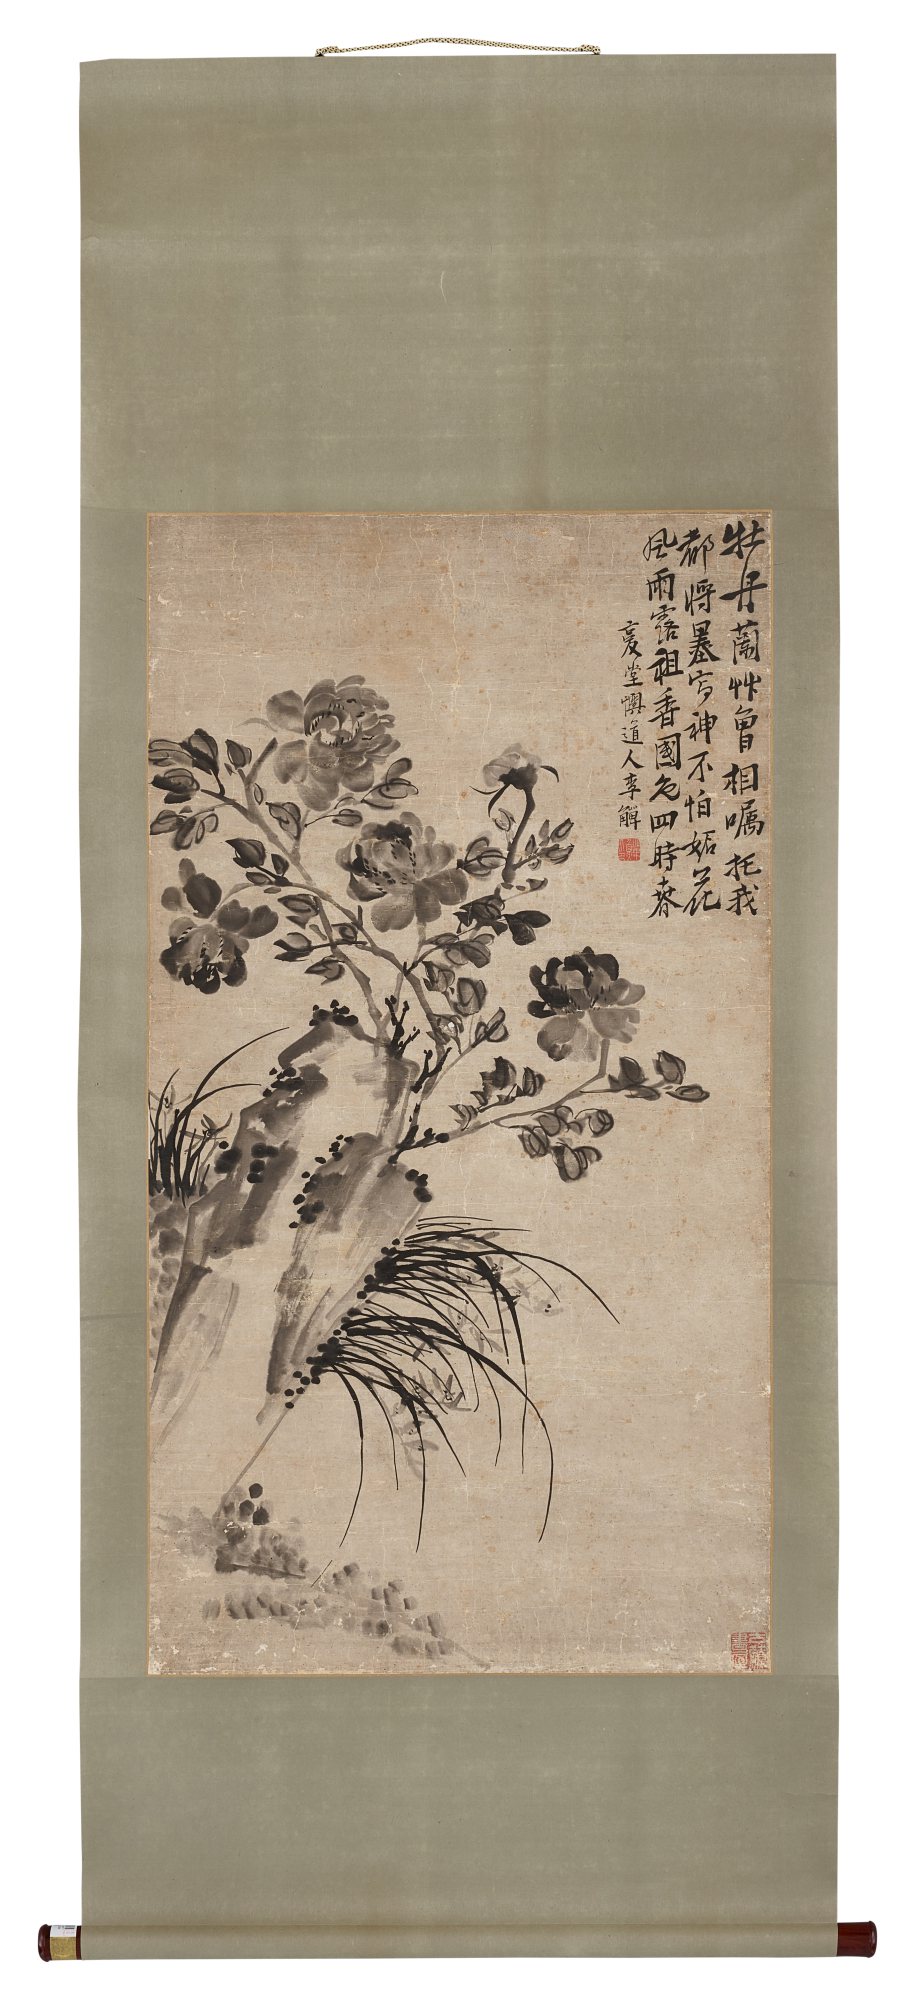 牡丹蘭艸曾相囑托我
都將墨寫神不怕妬花
風雨露祖香國色四時春
復堂懊道人李觶